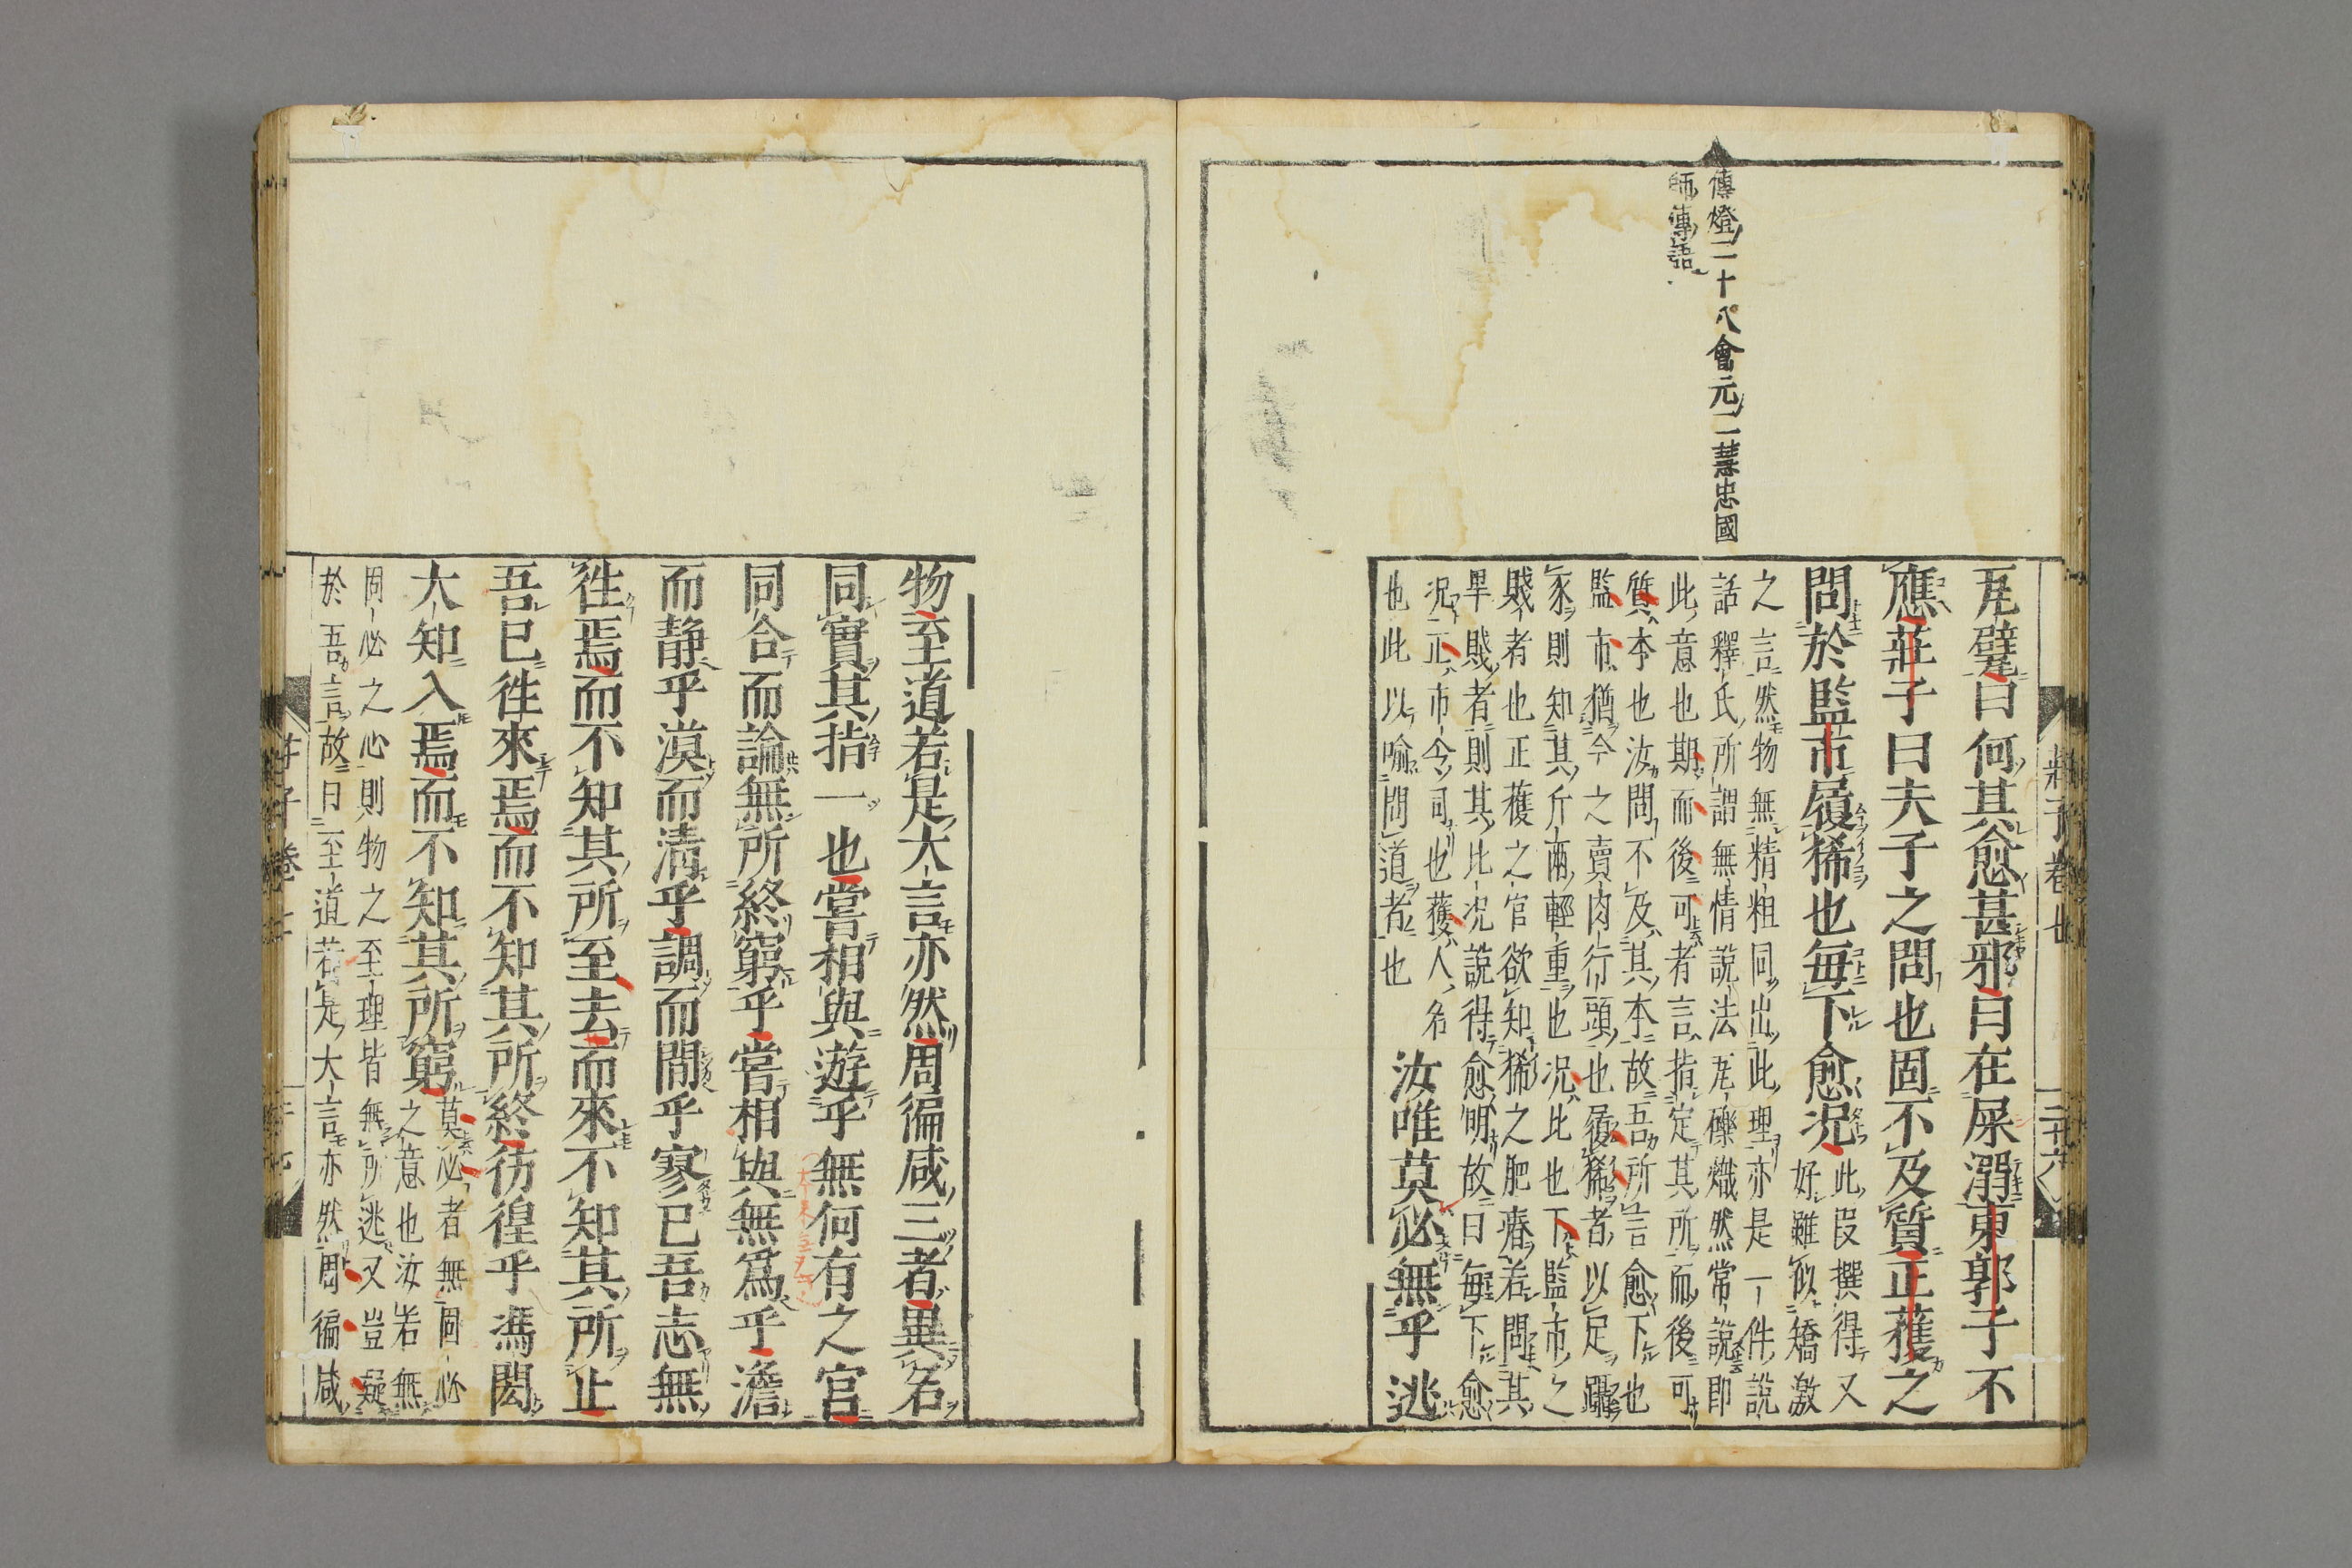 傳燈二十八會元二慧忠國
師傳語
瓦甓曰何其愈甚邪曰在屎溺東郭子不
應莊子曰夫子之問也固不及質正獲之
問於監市履狶也每下愈況
此段撰得又
好雖似矯激
之言然物無精粗同出此理亦是一件說
話釋氏所謂無情說法瓦礫熾然常說即
此意也期而後可者言指定其所而後可
質本也汝問不及其本故吾所言愈下也
監市猶今之賣肉行頭也履狶者以足躡
豕則知其斤兩輕重也況比也下監市之
賤者也正獲之官欲知狶之肥瘠若問其
卑賤者則其比況說得愈明故曰每下愈
況正市令司也獲人名
也此以喻問道者也
汝唯莫必無乎逃
物至道若是大言亦然周徧咸三者異名
同實其指一也嘗相與遊乎無何有之宮
同合而論無所終窮乎嘗相與無爲乎澹
而静乎漠而清乎調而閒乎寥已吾志無
徃焉而不知其所至去而來不知其所止
吾已徃來焉而不知其所終彷徨乎馮閎
大知入焉而不知其所窮
莫必者無固必
之意也汝若無
固必之心則物之至理皆無所逃又豈疑
於吾言故曰至道若是大言亦然周徧咸